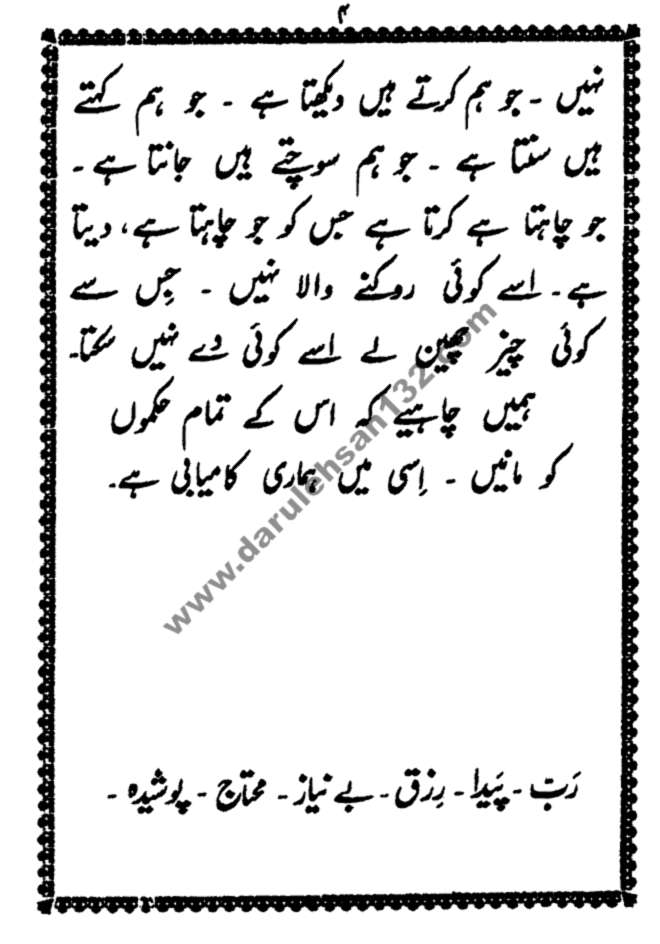 ۴
نہیں ۔ جو ہم کرتے ہیں دیکھتا ہے ۔ جو ہم کہتے
ہیں سنتا ہے ۔ جو ہم سوچتے ہیں جانتا ہے ۔
جو چاہتا ہے کرتا ہے جس کو جو چاہتا ہے، دیتا
ہے ۔ اسے کوئی روکنے والا نہیں ۔ جِس سے
کوئی چیز چھین لے اسے کوئی دے نہیں سکتا۔
ہمیں چاہیے کہ اس کے تمام حکموں
کو مانیں ۔ اِسی میں ہماری کامیابی ہے۔
www.darulehsan132.com
رَبّ ۔ پَیدا ۔ رِزق ۔ بے نیاز ۔ محتاج ۔ پوشیدہ ۔